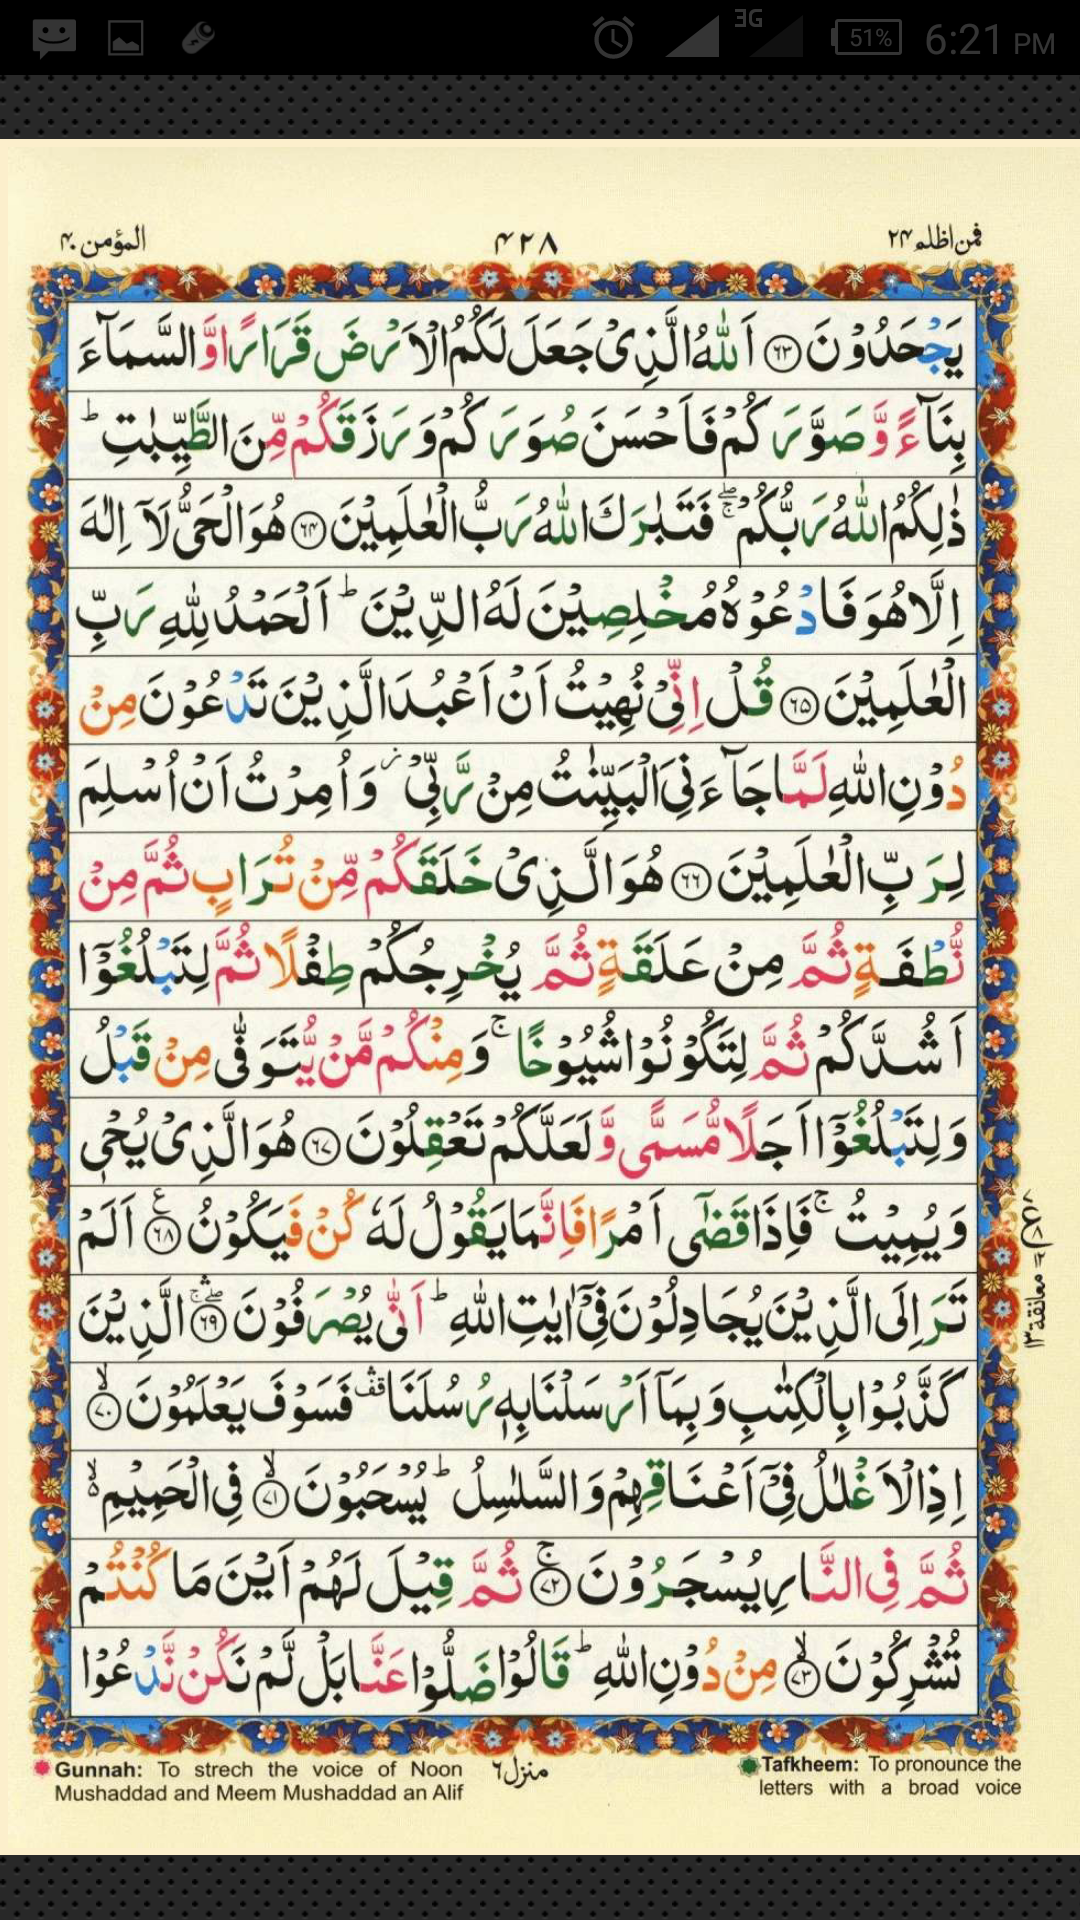 3G 51% 6:21 PM
فمن اظلم ٢٤ ٤٢٨ المؤمن ٤٠
يَجْحَدُوْنَ ﴿٦٣﴾ اَللّٰهُ الَّذِیْ جَعَلَ لَكُمُ الْاَرْضَ قَرَارًا وَّ السَّمَآءَ
بِنَآءً وَّ صَوَّرَكُمْ فَاَحْسَنَ صُوَرَكُمْ وَ رَزَقَكُمْ مِّنَ الطَّیِّبٰتِ ؕ
ذٰلِكُمُ اللّٰهُ رَبُّكُمْ ۖۚ فَتَبٰرَكَ اللّٰهُ رَبُّ الْعٰلَمِیْنَ ﴿٦٤﴾ هُوَ الْحَیُّ لَاۤ اِلٰهَ
اِلَّا هُوَ فَادْعُوْهُ مُخْلِصِیْنَ لَهُ الدِّیْنَ ؕ اَلْحَمْدُ لِلّٰهِ رَبِّ
الْعٰلَمِیْنَ ﴿٦٥﴾ قُلْ اِنِّیْ نُهِیْتُ اَنْ اَعْبُدَ الَّذِیْنَ تَدْعُوْنَ مِنْ
دُوْنِ اللّٰهِ لَمَّا جَآءَنِیَ الْبَیِّنٰتُ مِنْ رَّبِّیْ ؗ وَ اُمِرْتُ اَنْ اُسْلِمَ
لِرَبِّ الْعٰلَمِیْنَ ﴿٦٦﴾ هُوَ الَّذِیْ خَلَقَكُمْ مِّنْ تُرَابٍ ثُمَّ مِنْ
نُّطْفَةٍ ثُمَّ مِنْ عَلَقَةٍ ثُمَّ یُخْرِجُكُمْ طِفْلًا ثُمَّ لِتَبْلُغُوْۤا
اَشُدَّكُمْ ثُمَّ لِتَكُوْنُوْا شُیُوْخًا ۚ وَ مِنْكُمْ مَّنْ یُّتَوَفّٰی مِنْ قَبْلُ
وَ لِتَبْلُغُوْۤا اَجَلًا مُّسَمًّی وَّ لَعَلَّكُمْ تَعْقِلُوْنَ ﴿٦٧﴾ هُوَ الَّذِیْ یُحْیٖ
وَ یُمِیْتُ ۚ فَاِذَا قَضٰۤی اَمْرًا فَاِنَّمَا یَقُوْلُ لَهٗ كُنْ فَیَكُوْنُ ﴿٦٨﴾ اَلَمْ
تَرَ اِلَی الَّذِیْنَ یُجَادِلُوْنَ فِیْۤ اٰیٰتِ اللّٰهِ ؕ اَنّٰی یُصْرَفُوْنَ ﴿٦٩﴾ الَّذِیْنَ
كَذَّبُوْا بِالْكِتٰبِ وَ بِمَاۤ اَرْسَلْنَا بِهٖ رُسُلَنَا ۛ۫ فَسَوْفَ یَعْلَمُوْنَ ﴿٧٠﴾
اِذِ الْاَغْلٰلُ فِیْۤ اَعْنَاقِهِمْ وَ السَّلٰسِلُ ؕ یُسْحَبُوْنَ ﴿٧١﴾ فِی الْحَمِیْمِ ۙ۬
ثُمَّ فِی النَّارِ یُسْجَرُوْنَ ﴿٧٢﴾ ثُمَّ قِیْلَ لَهُمْ اَیْنَ مَا كُنْتُمْ
تُشْرِكُوْنَ ﴿٧٣﴾ مِنْ دُوْنِ اللّٰهِ ؕ قَالُوْا ضَلُّوْا عَنَّا بَلْ لَّمْ نَكُنْ نَّدْعُوْا
معانقة ١٣
منزل ٦
Gunnah: To strech the voice of Noon
Mushaddad and Meem Mushaddad an Alif
Tafkheem: To pronounce the
letters with a broad voice